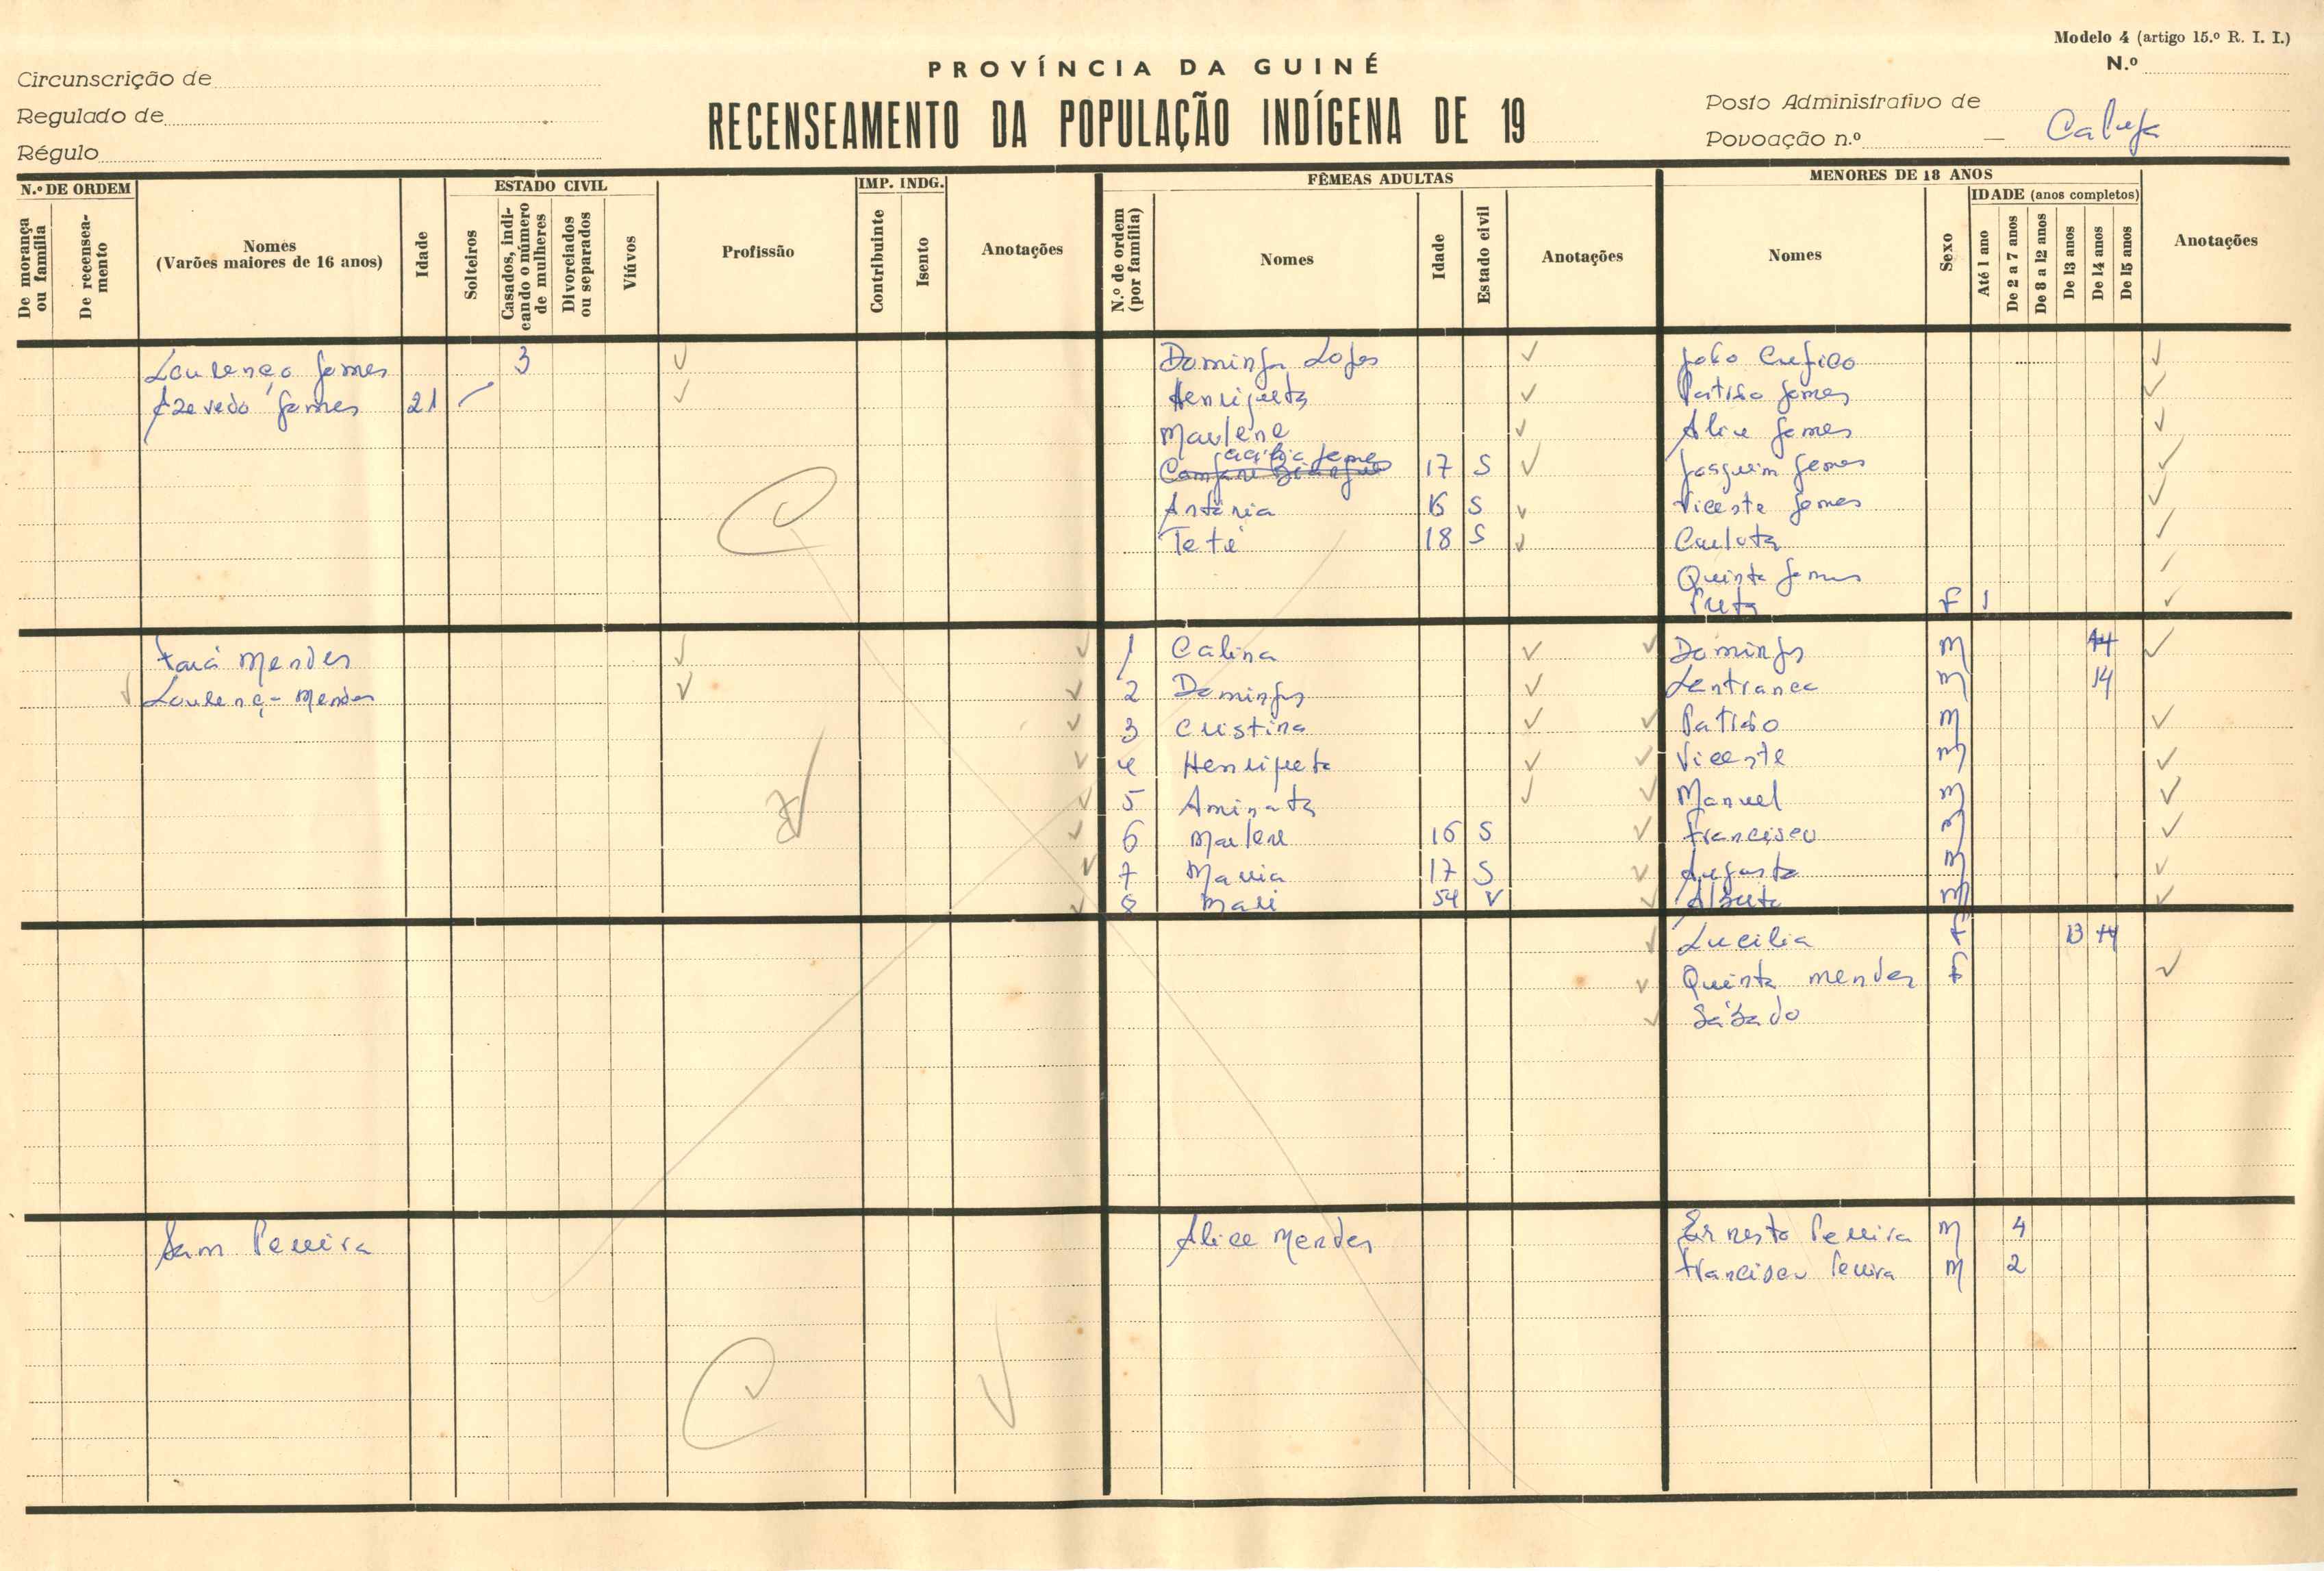 Modelo 4 (artigo 15.º R. I. I.)
N.º
PROVÍNCIA DA GUINÉ
RECENSEAMENTO DA POPULAÇÃO INDÍGENA DE 19
Circunscrição de
Regulado de
Régulo
Posto Administrativo de
Povoação n.º —
N.º DE ORDEM
De morança ou família
De recenseamento
Nomes
(Varões maiores de 16 anos)
Idade
ESTADO CIVIL
Solteiros
Casados, indicando o número de mulheres
Divorciados ou separados
Viúvos
Profissão
IMP. INDG.
Contribuinte
Isento
Anotações
FÊMEAS ADULTAS
N.º de ordem (por família)
Nomes
Idade
Estado civil
Anotações
MENORES DE 18 ANOS
Nomes
Sexo
IDADE (anos completos)
Até 1 ano
De 2 a 7 anos
De 8 a 12 anos
De 13 anos
De 14 anos
De 15 anos
Anotações
Lourenço Gomes 3
Azevedo Gomes 21
Dominga Lopes
Henriqueta
Marlene
Gomes 17 S
Antónia S
Teté 18 S
João
Patrão Gomes
Alice Gomes
Joaquim Gomes
Vicente Gomes
Carlota
Quinta Gomes
Preta F 1
Mendes
Lourenç- Mendes
1 Calina
2 Domingas
3 Cristina
4 Henriqueta
5 Aminata
6 Marlene 16 S
7 Maria 17 S
8 54 V
Domingos M 14
M 14
M
Vicente M
Manuel M
Francisco M
Augusto M
Alberto M
Lucilia F 13 14
Quinta Mendes F
Sábado
Sam Pereira
Alice Mendes
Ernesto Pereira M 4
Francisco Pereira M 2